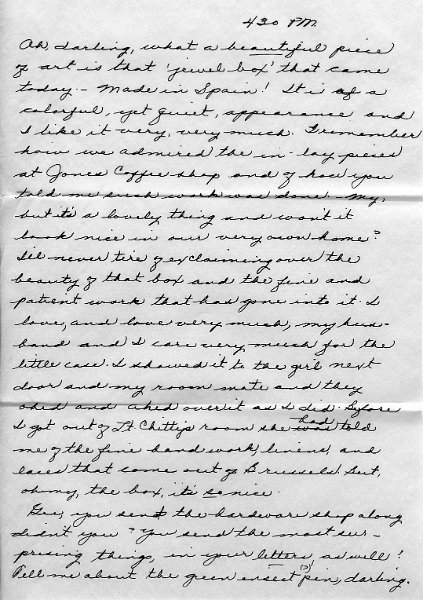 430 P.M.
Ah, darling, what a beautiful piece
of art is that 'jewel box' that came
today - Made in Spain! It is of a
colorful, yet quiet, appearance and
I like it very, very much. I remember
how we admired the in-lay pieces
at Jones Coffee shop and of how you
told me such work was done - My,
but it's a lovely thing and won't it
look nice in our very own home?
I'll never tire of exclaiming over the
beauty of that box and the fine and
patient work that has gone into it. I
love, and love very much, my hus-
band and I care very much for the
little case. I showed it to the girl next
door and my room mate and they
ohed and ahed over it as I did. Before
I got out of Lt Chitty's room she had told
me of the fine hand work, linens, and
laces that come out of Brussels. But,
oh my, the box, it's so nice.
Gee, you send the hardware shop along
didn't you? You send the most sur-
prising things, in your letters, as well!
Tell me about the green insect (?) pin, darling.